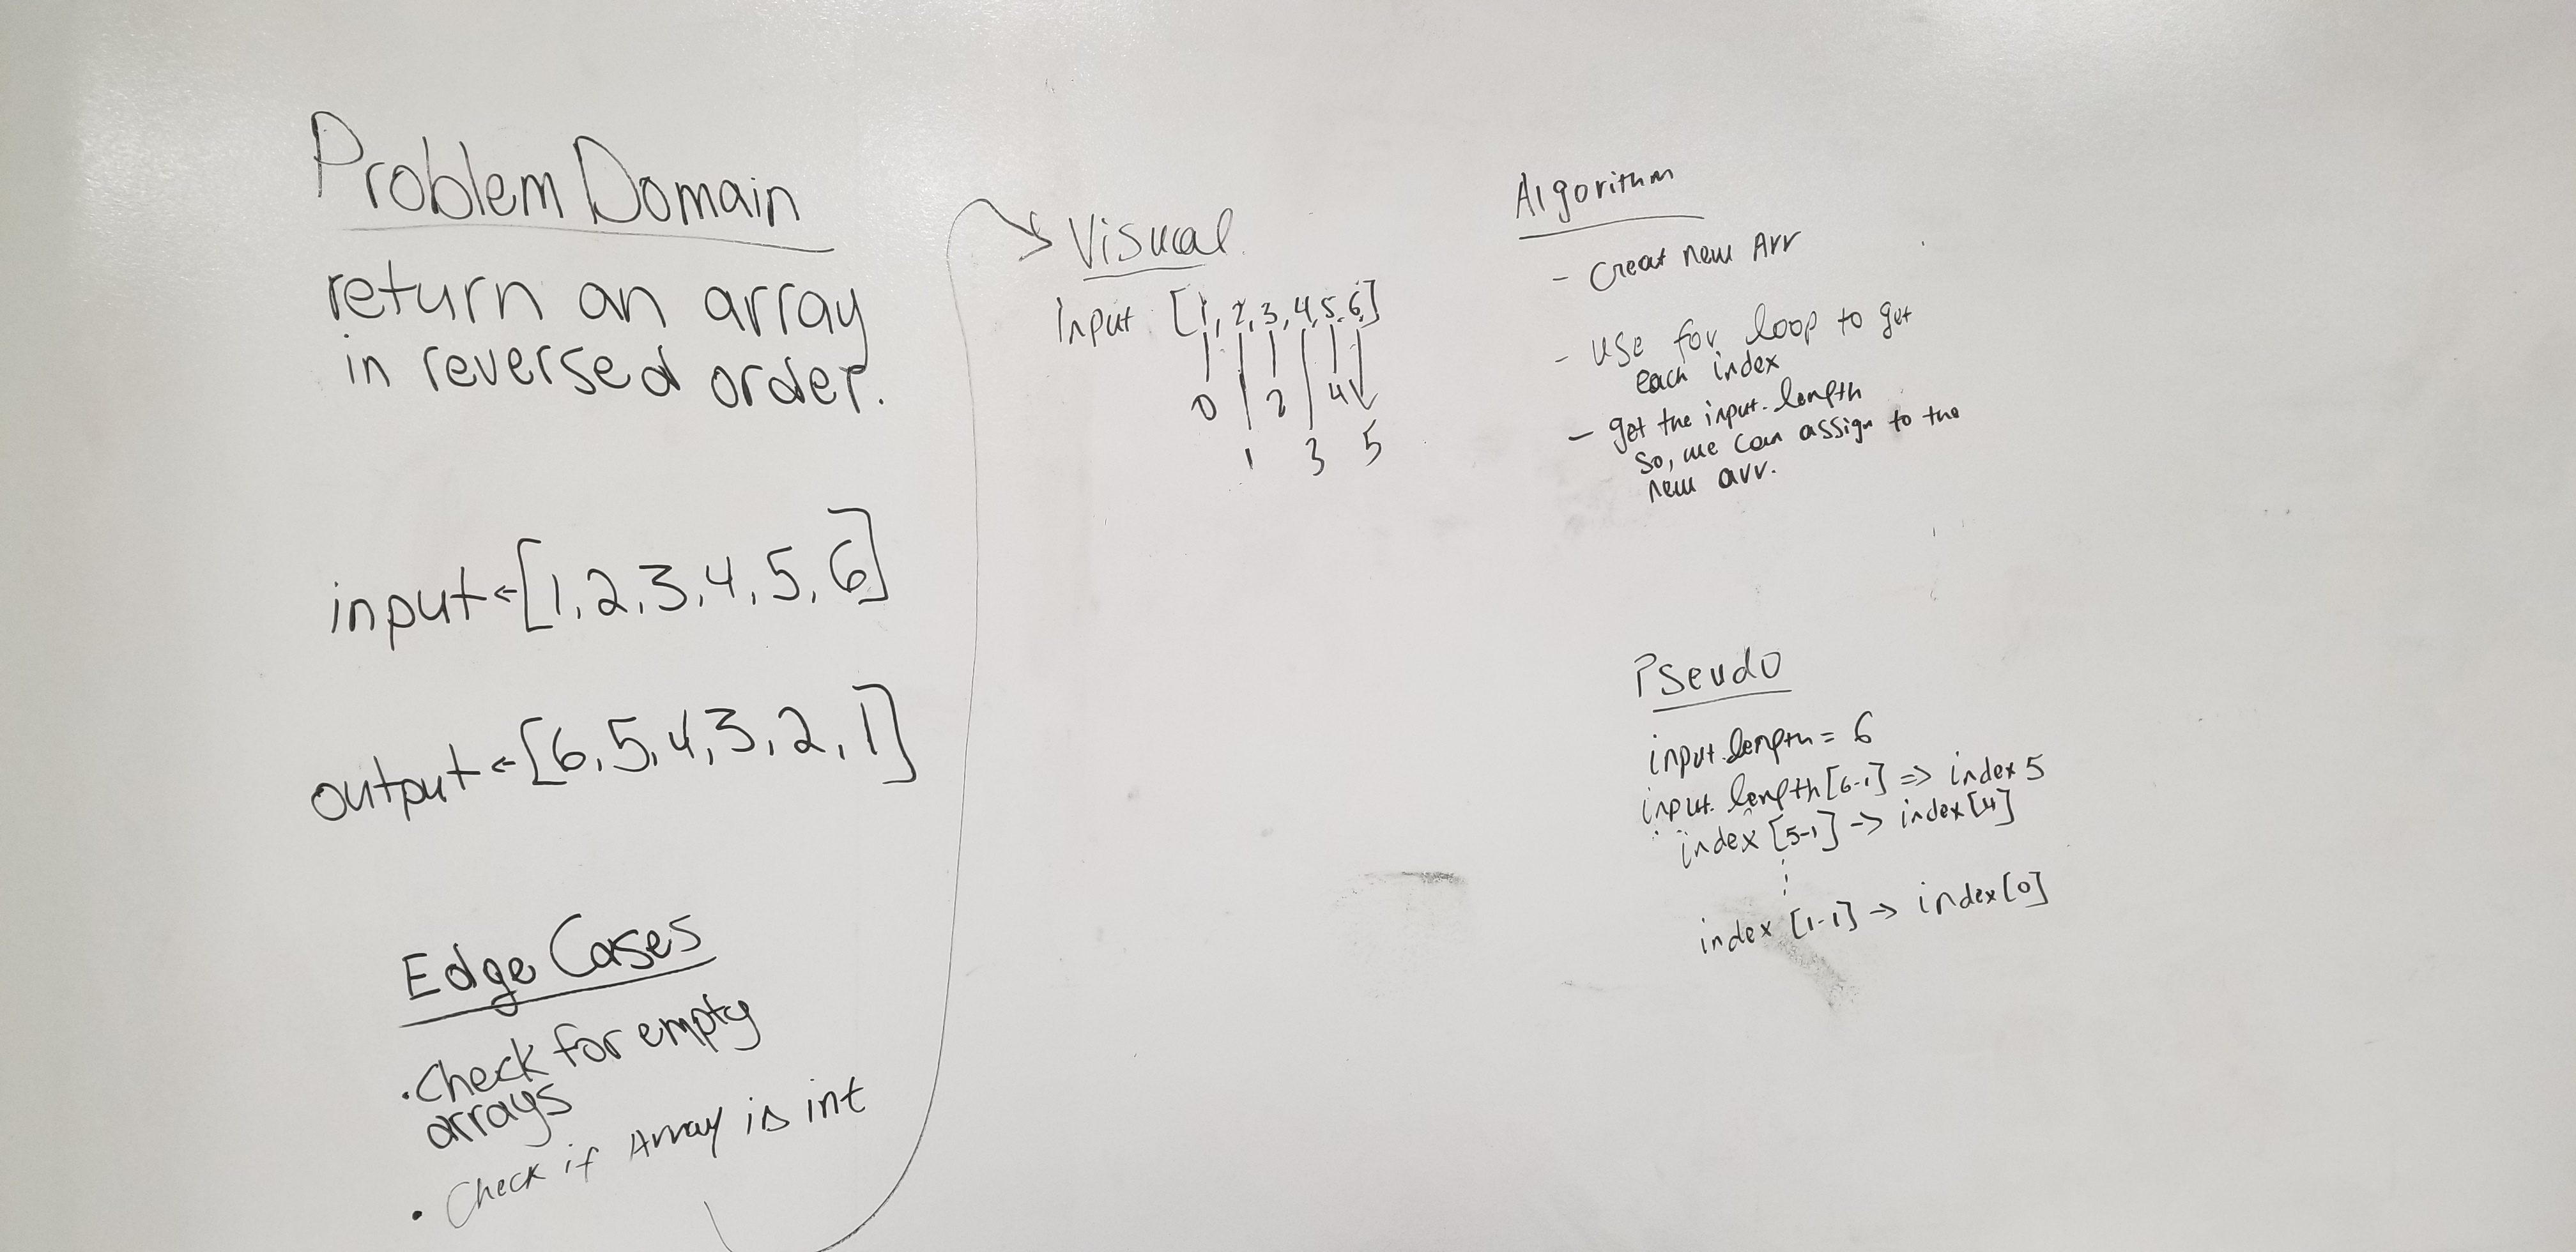 Problem Domain
return an array
in reversed order.
input <- [1,2,3,4,5,6]
output <- [6,5,4,3,2,1]
Edge Cases
• Check for empty
arrays
• Check if Array is int
Visual
Input [1,2,3,4,5,6]
0 2 4
1 3 5
Algorithm
- Creat new Arr
- use for loop to get
each index
- get the input.length
so, we can assign to the
new arr.
Pseudo
input.length = 6
input.length[6-1] => index 5
index [5-1] -> index[4]
index [1-1] -> index[0]